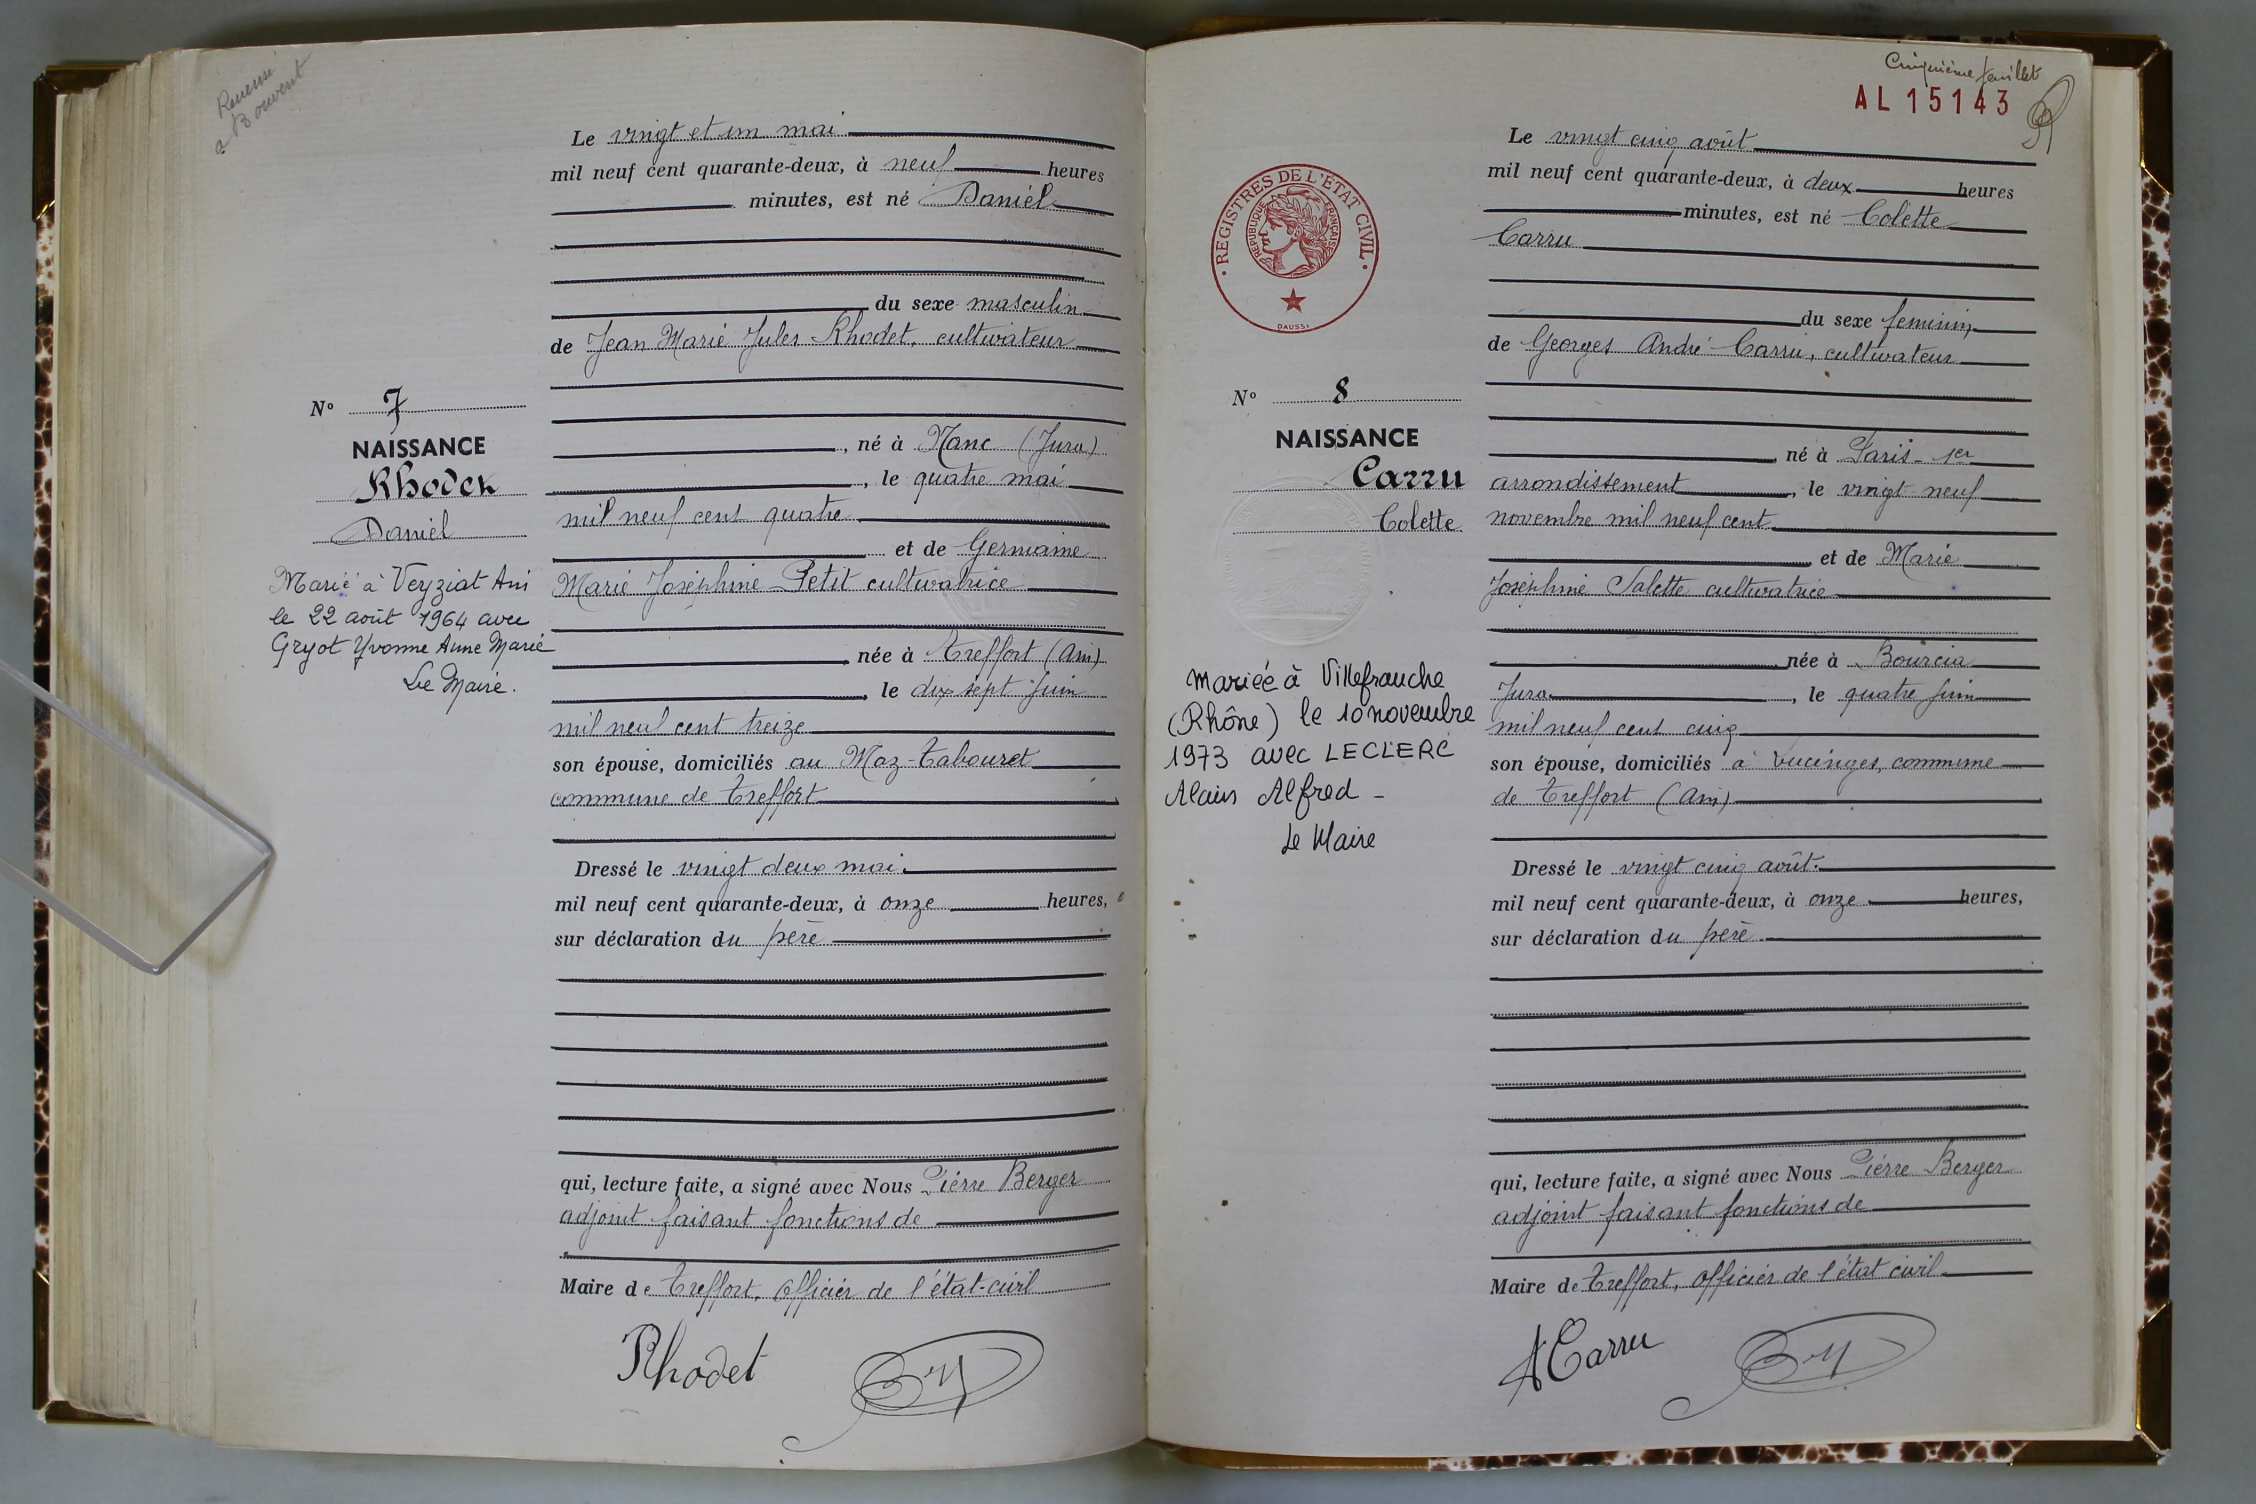 a Bouvent
Le vingt et un mai
mil neuf cent quarante-deux, à neuf heures
minutes, est né Daniel
du sexe masculin
de Jean Marie Jules Rhodet, cultivateur
, né à Nanc (Jura)
, le quatre mai
mil neuf cent quatre
et de Germaine
Marie Joséphine Petit cultivatrice
née à Treffort (Ain)
, le dix sept juin
mil neuf cent treize
son épouse, domiciliés au Maz-Tabouret
commune de Treffort
Dressé le vingt deux mai.
mil neuf cent quarante-deux, à onze heures,
sur déclaration du père
qui, lecture faite, a signé avec Nous Pierre Berger
adjoint faisant fonctions de
Maire de Treffort, officier de l'état-civil
Rhodet
No 7
NAISSANCE
Rhodet
Daniel
Marié à Veyziat Ain
le 22 août 1964 avec
Gryot Yvonne Anne Marie
Le Maire.
Cinquième feuillet
AL 15143
Le vingt cinq août
mil neuf cent quarante-deux, à deux heures
minutes, est né Colette
Carru
du sexe feminin,
de Georges André Carru, cultivateur
né à Paris - 1er
arrondissement, le vingt-neuf
novembre mil neuf cent
et de Marie
Joséphine Salette cultivatrice
née à Bourcia
Jura, le quatre juin
mil neuf cent cinq
son épouse, domiciliés à Vucinges, commune
de Treffort (Ain)
Dressé le vingt cinq août.
mil neuf cent quarante-deux, à onze heures,
sur déclaration du père.
qui, lecture faite, a signé avec Nous Pierre Berger
adjoint faisant fonctions de
Maire de Treffort, officier de l'état civil
A Carru
REGISTRES DE L'ÉTAT CIVIL
RÉPUBLIQUE FRANÇAISE
No 8
NAISSANCE
Carru
Colette
Mariée à Villefranche
(Rhône) le 10 novembre
1973 avec LECLERC
Alain Alfred -
Le Maire